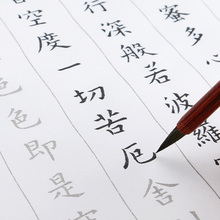 蜜多心
行深般若波羅
空度一切苦厄舍
色色即是空